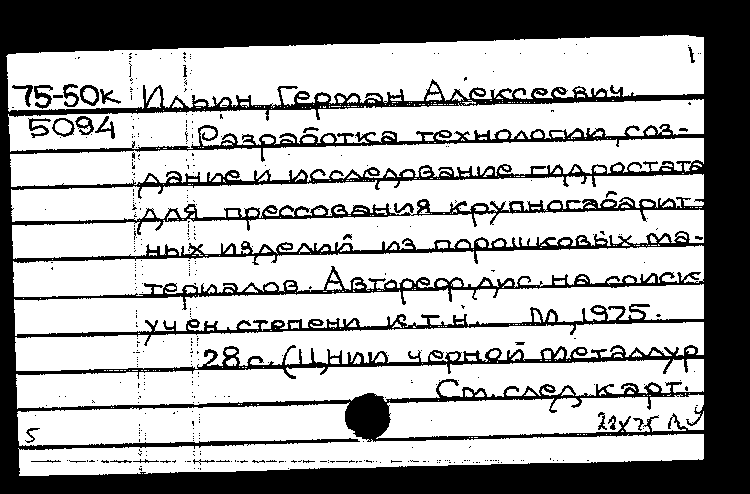 1
75-50к Ильин, Герман Алексеевич.
5094 Разработка технологии, соз-
дание и исследование гидростата
для прессования крупногабарит-
ных изделий из порошковых ма-
териалов. Автореф. дис. на соиск
учен. степени к.т.н. М, 1975.
28 с. (ЦНИИ черной металлур
См. след. карт.
5